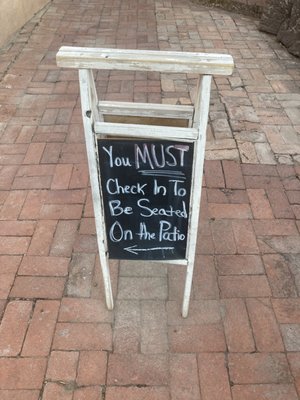 You MUST
Check In To
Be Seated
On the Patio